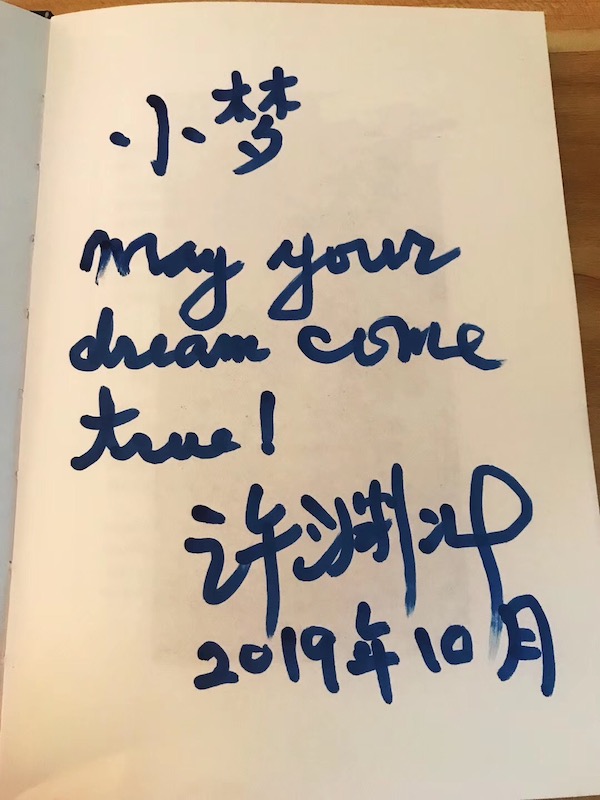 小梦
may your
dream come
true!
许渊冲
2019年10月